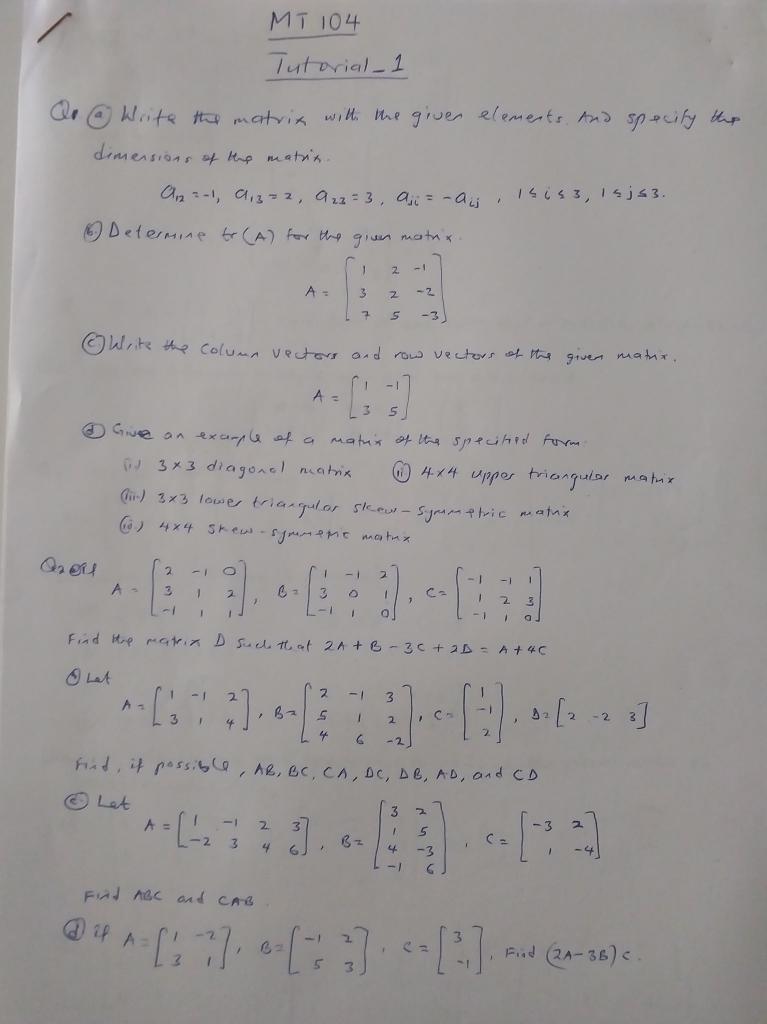 MT 104
Tutorial_1
Q1 (a) Write the matrix with the given elements. And specify the
dimensions of the matrix.
a₁₂ = -1, a₁₃ = 2, a₂₃ = 3, aⱼᵢ = -aᵢⱼ , 1 ≤ i ≤ 3, 1 ≤ j ≤ 3.
(b) Determine tr(A) for the given matrix.
A = [1 2 -1
3 2 -2
7 5 -3]
(c) Write the column vectors and row vectors of the given matrix.
A = [1 -1
3 5]
(d) Give an example of a matrix of the specified form.
(i) 3x3 diagonal matrix (ii) 4x4 upper triangular matrix
(iii) 3x3 lower triangular skew-symmetric matrix
(iv) 4x4 skew-symmetric matrix
Q2 If
A = [2 -1 0
3 1 2
-1 1 1], B = [1 -1 2
3 0 1
-1 1 0], C = [-1 -1 1
1 2 3
-1 1 0]
Find the matrix D such that 2A + B - 3C + 2D = A + 4C
Let
A = [1 -1 2
3 1 4], B = [2 -1 3
5 1 2
4 6 -2], C = [1
-1
2], D = [2 -2 3]
Find, if possible, AB, BC, CA, DC, DB, AD, and CD
(c) Let
A = [1 -1 2 3
-2 3 4 6], B = [3 2
1 5
4 -3
-1 6], C = [-3 2
1 -4]
Find ABC and CAB.
(d) if A = [1 -2
3 1], B = [-1 2
5 3], C = [3
-1], Find (2A-3B)C.